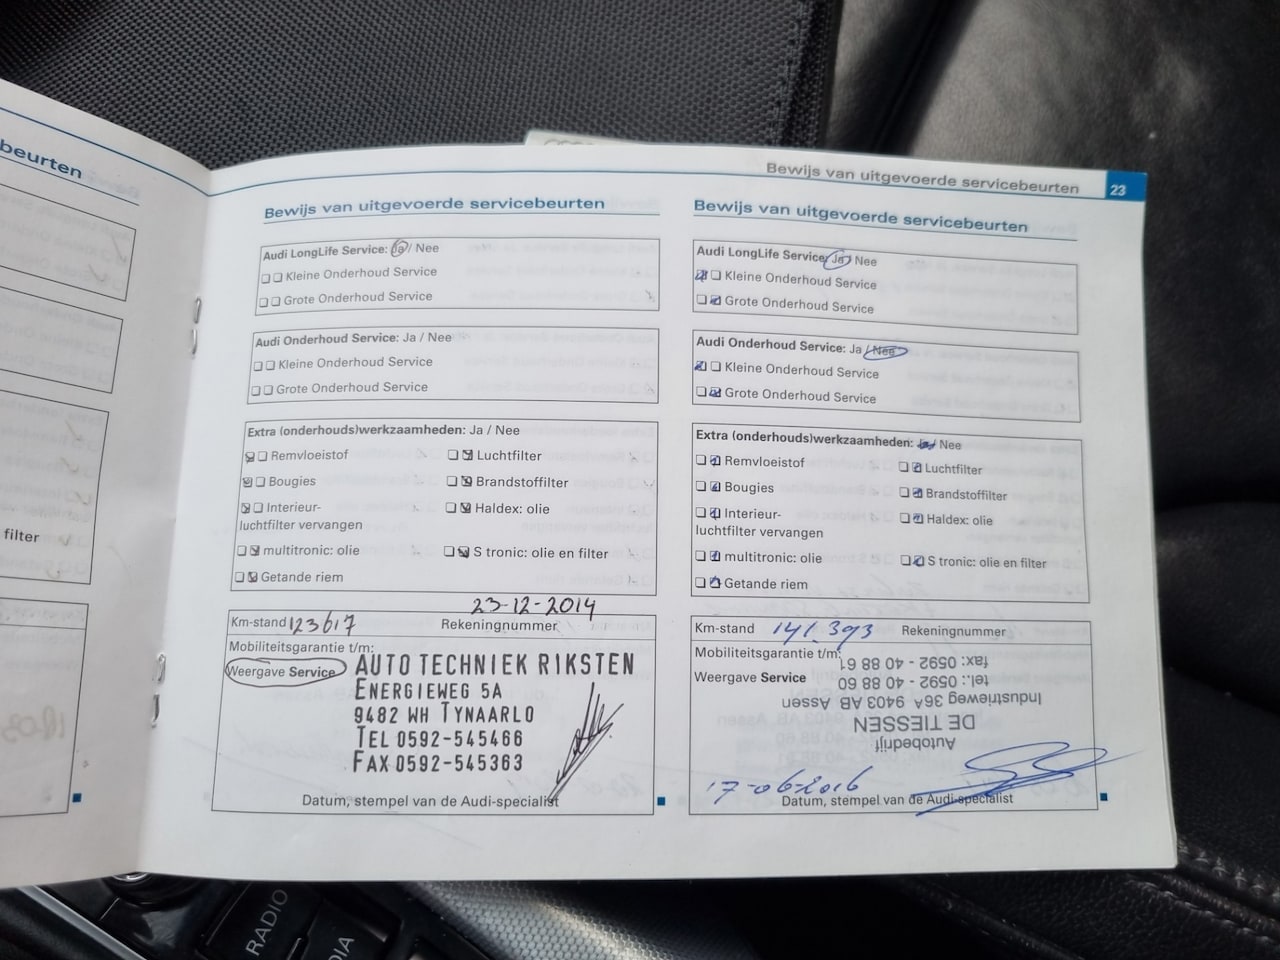 beurten
filter
Bewijs van uitgevoerde servicebeurten
23
Bewijs van uitgevoerde servicebeurten
Audi LongLife Service: Ja / Nee
Kleine Onderhoud Service
Grote Onderhoud Service
Audi Onderhoud Service: Ja / Nee
Kleine Onderhoud Service
Grote Onderhoud Service
Extra (onderhouds)werkzaamheden: Ja / Nee
Remvloeistof
Luchtfilter
Bougies
Brandstoffilter
Interieur-
luchtfilter vervangen
Haldex: olie
multitronic: olie
S tronic: olie en filter
Getande riem
23-12-2014
Km-stand 123617
Rekeningnummer
Mobiliteitsgarantie t/m:
Weergave Service
AUTO TECHNIEK RIKSTEN
ENERGIEWEG 5A
9482 WH TYNAARLO
TEL 0592-545466
FAX 0592-545363
Datum, stempel van de Audi-specialist
Bewijs van uitgevoerde servicebeurten
Audi LongLife Service: Ja / Nee
Kleine Onderhoud Service
Grote Onderhoud Service
Audi Onderhoud Service: Ja / Nee
Kleine Onderhoud Service
Grote Onderhoud Service
Extra (onderhouds)werkzaamheden: Ja / Nee
Remvloeistof
Luchtfilter
Bougies
Brandstoffilter
Interieur-
luchtfilter vervangen
Haldex: olie
multitronic: olie
S tronic: olie en filter
Getande riem
Km-stand 141.393
Rekeningnummer
Mobiliteitsgarantie t/m:
Weergave Service
Autobedrijf
DE TIESSEN
Industrieweg 36A 9403 AB Assen
tel.: 0592 - 40 88 60
fax: 0592 - 40 88 61
17-06-2016
Datum, stempel van de Audi-specialist
RADIO